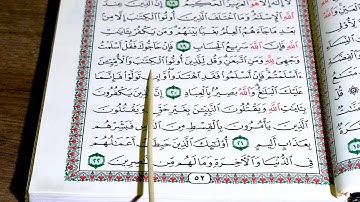 لَا إِلَٰهَ إِلَّا هُوَ الْعَزِيزُ الْحَكِيمُ
اللَّهِ الْإِسْلَامُ وَمَا اخْتَلَفَ الَّذِينَ أُوتُوا الْكِتَابَ إِلَّا مِنْ
بَعْدِ مَا جَاءَهُمُ الْعِلْمُ بَغْيًا بَيْنَهُمْ وَمَنْ يَكْفُرْ بِآيَاتِ
اللَّهِ فَإِنَّ اللَّهَ سَرِيعُ الْحِسَابِ ١٩ فَإِنْ حَاجُّوكَ فَقُلْ أَسْلَمْتُ
وَجْهِيَ لِلَّهِ وَمَنِ اتَّبَعَنِ وَقُلْ لِلَّذِينَ أُوتُوا الْكِتَابَ وَالْأُمِّيِّينَ
ءَأَسْلَمْتُمْ فَإِنْ أَسْلَمُوا فَقَدِ اهْتَدَوْا وَإِنْ تَوَلَّوْا فَإِنَّمَا
عَلَيْكَ الْبَلَاغُ وَاللَّهُ بَصِيرٌ بِالْعِبَادِ ٢٠ إِنَّ الَّذِينَ يَكْفُرُونَ
بِآيَاتِ اللَّهِ وَيَقْتُلُونَ النَّبِيِّينَ بِغَيْرِ حَقٍّ وَيَقْتُلُونَ
الَّذِينَ يَأْمُرُونَ بِالْقِسْطِ مِنَ النَّاسِ فَبَشِّرْهُمْ
بِعَذَابٍ أَلِيمٍ ٢١ أُولَٰئِكَ الَّذِينَ حَبِطَتْ أَعْمَالُهُمْ
فِي الدُّنْيَا وَالْآخِرَةِ وَمَا لَهُمْ مِنْ نَاصِرِينَ ٢٢
٥٢